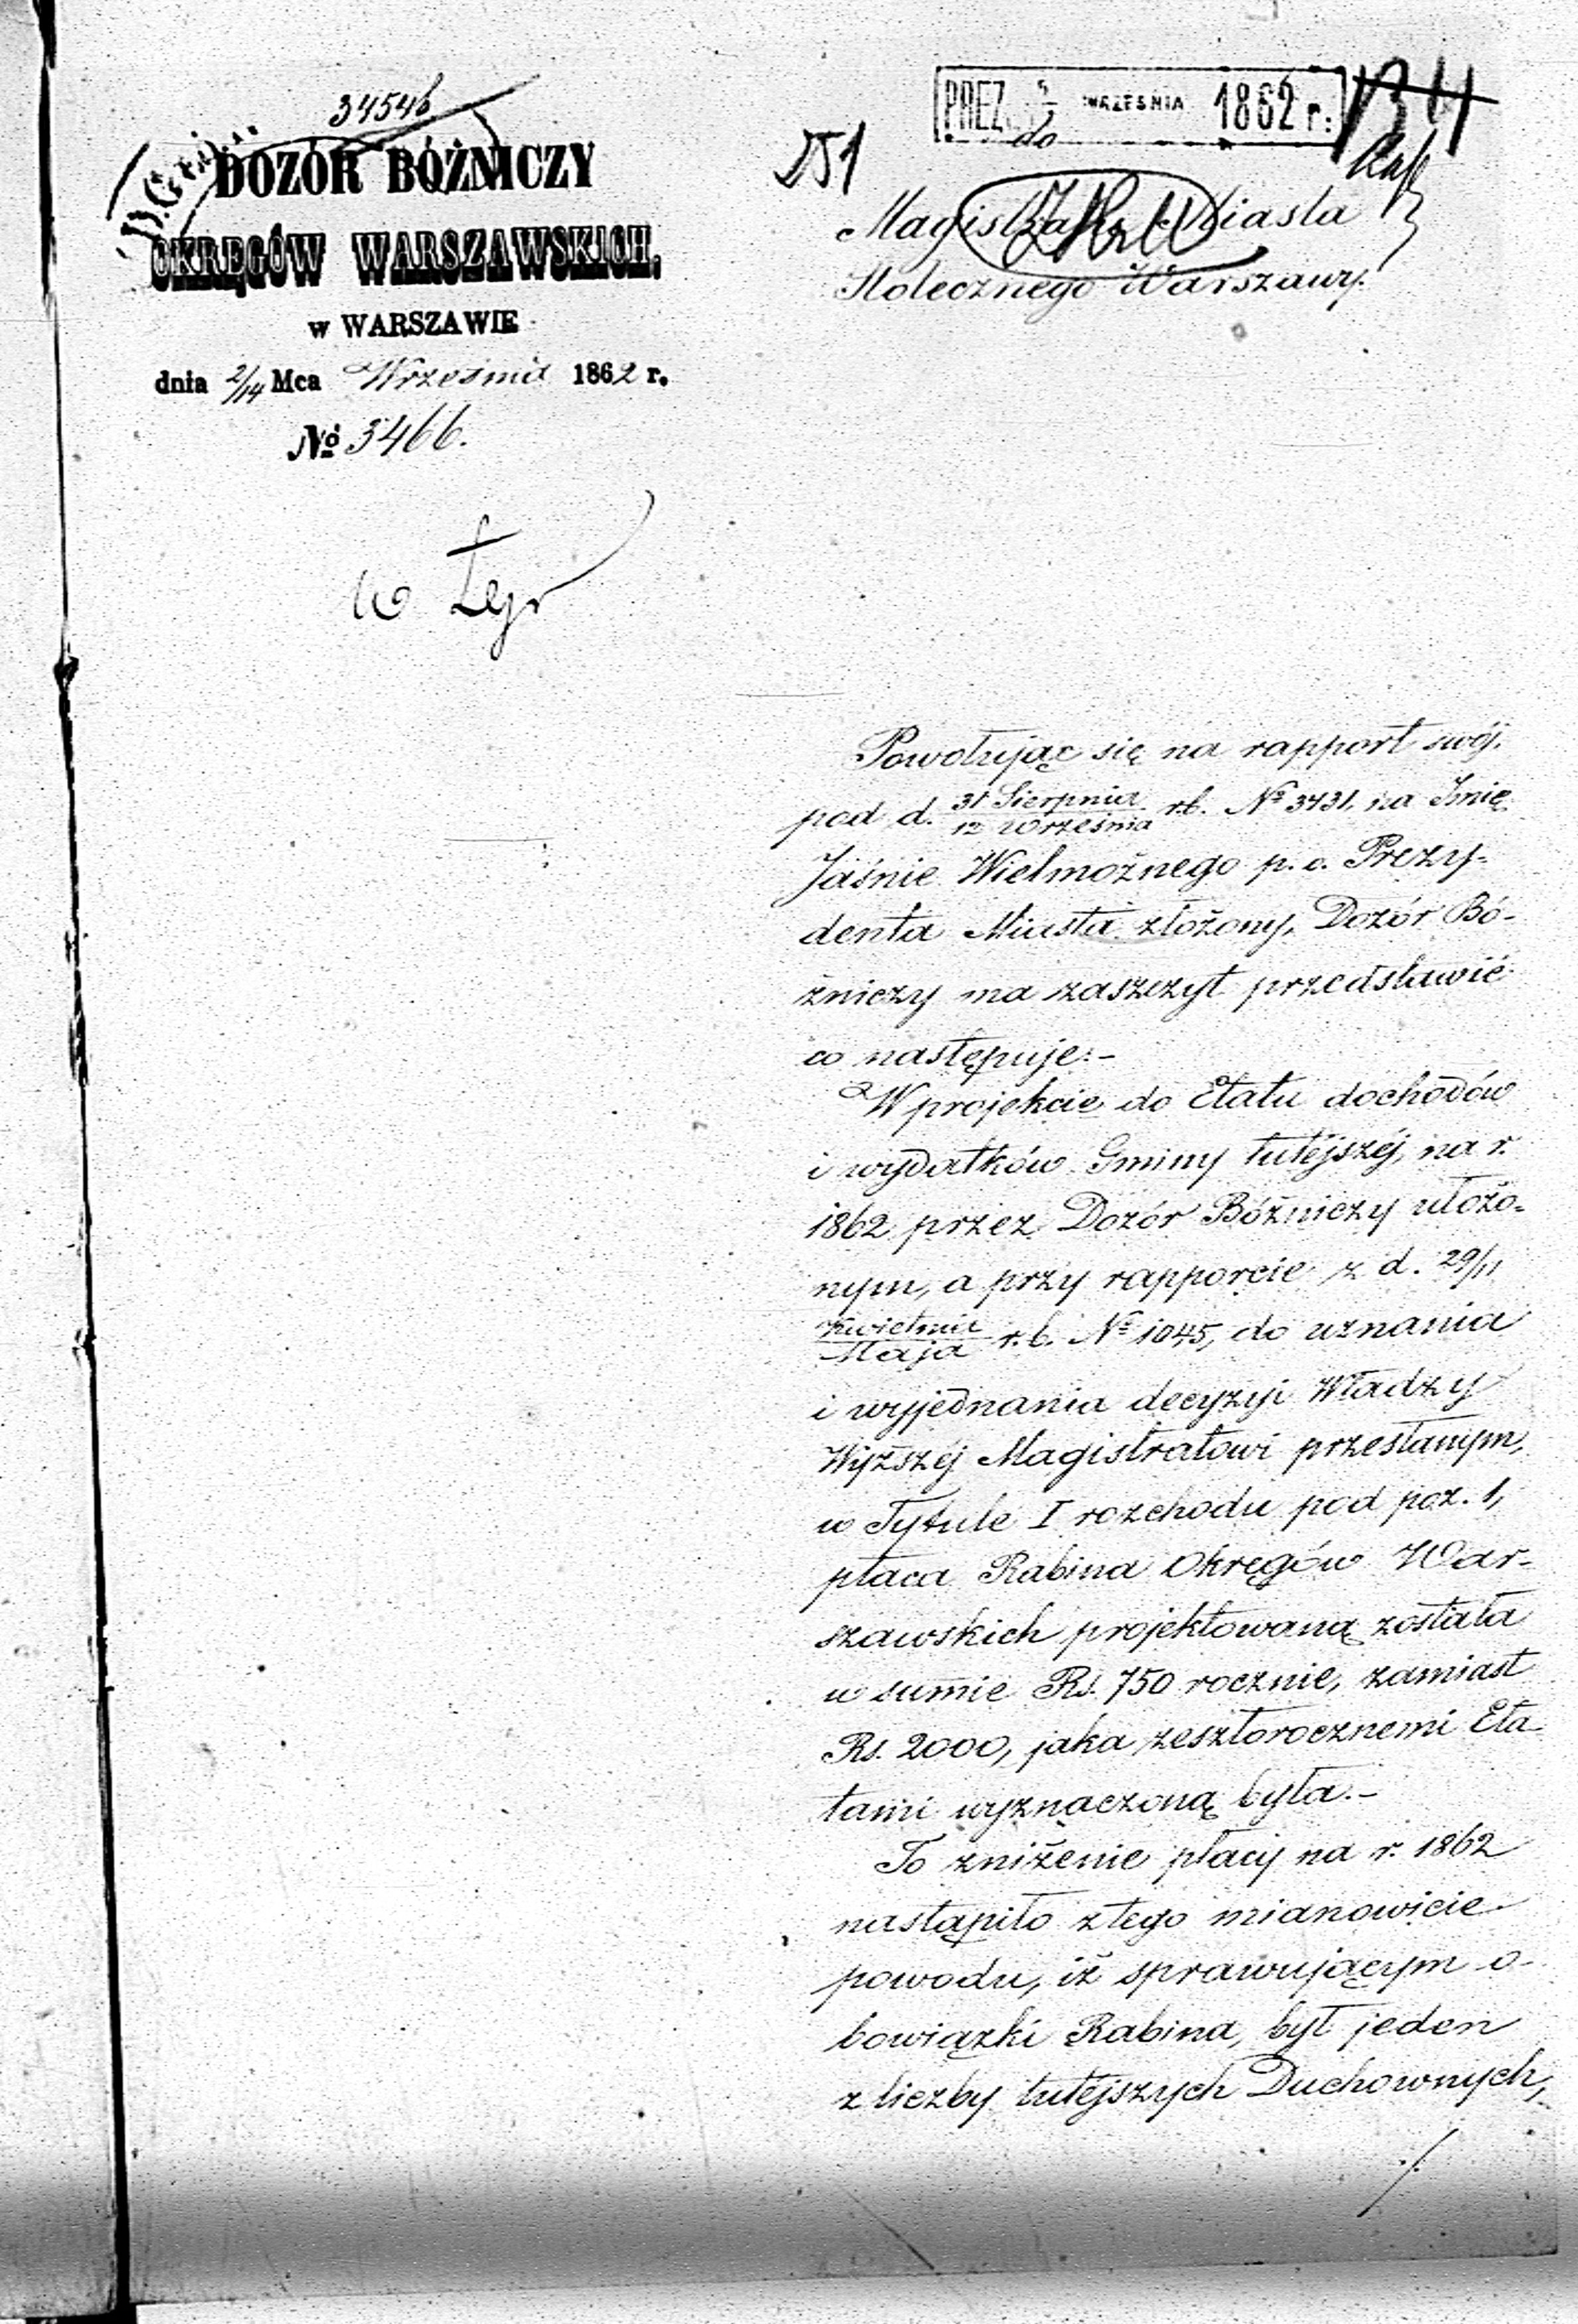 34546
DOZÓR BÓŻNICZY
OKRĘGÓW WARSZAWSKICH.
w WARSZAWIE
dnia 2/14 Mca Września 1862 r.
No 3466.
PREZ. WRZEŚNIA 1862 r.
251
do
Magistratu Miasta
Stołecznego Warszawy.
Powołując się na rapport swój,
pod d. 31 Sierpnia/12 Września r.b. No 3431, na Imię
Jaśnie Wielmożnego p. o. Prezy-
denta Miasta złożony, Dozór Bó-
żniczy ma zaszczyt przedstawić
co następuje:-
W projekcie do Etatu dochodów
i wydatków Gminy tutéjszéj, na r.
1862 przez Dozór Bóżniczy ułożo-
nym, a przy rapporcie z d. 29/11
Kwietnia/Maja r.b. No 1045, do uznania
i wyjednania decyzyi Władzy
Wyższéj Magistratowi przesłanym,
w Tytule I rozchodu pod poz. 1,
płaca Rabina Okręgów War-
szawskich projektowaną została
w summie Rs. 750 rocznie, zamiast
Rs. 2000, jaka zeszłorocznemi Eta-
tami wyznaczoną była.-
To zniżenie płacy na r. 1862
nastąpiło z tego mianowicie
powodu, iż sprawującym o-
bowiązki Rabina, był jeden
z liczby tutéjszych Duchownych,
./.